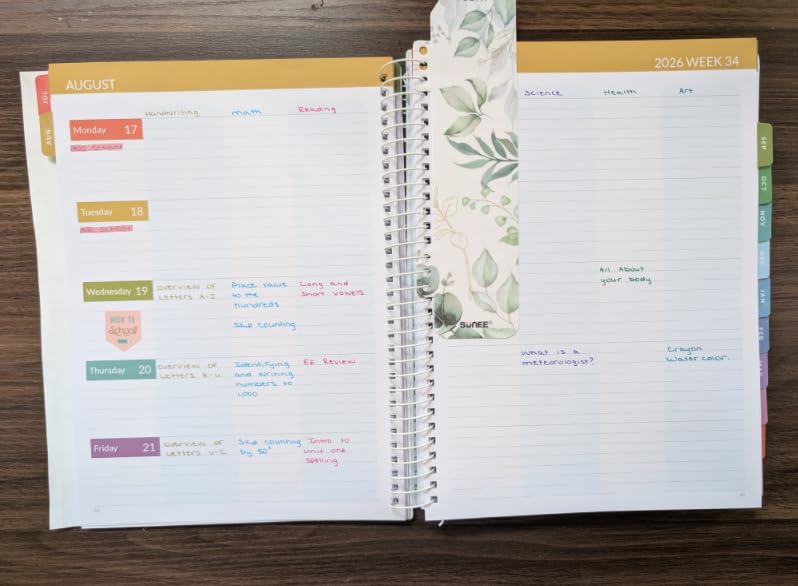 AUGUST
Handwriting
math
Reading
Monday 17
Tuesday 18
Wednesday 19
overview of
Letters A-I
Place value
to the
Hundreds
Skip counting
Long and
short vowels
school
Thursday 20
overview of
Letters
Identifying
and writing
numbers to
1,000
Review
Friday 21
overview of
Letters
Skip counting
by 50's
Intro to
unit one
spelling
SUNEE®
2026 WEEK 34
Science
Health
Art
All About
your body
What is a
meteorologist?
Crayon
Water color.
JUL
AUG
SEP
OCT
NOV
DEC
JAN
FEB